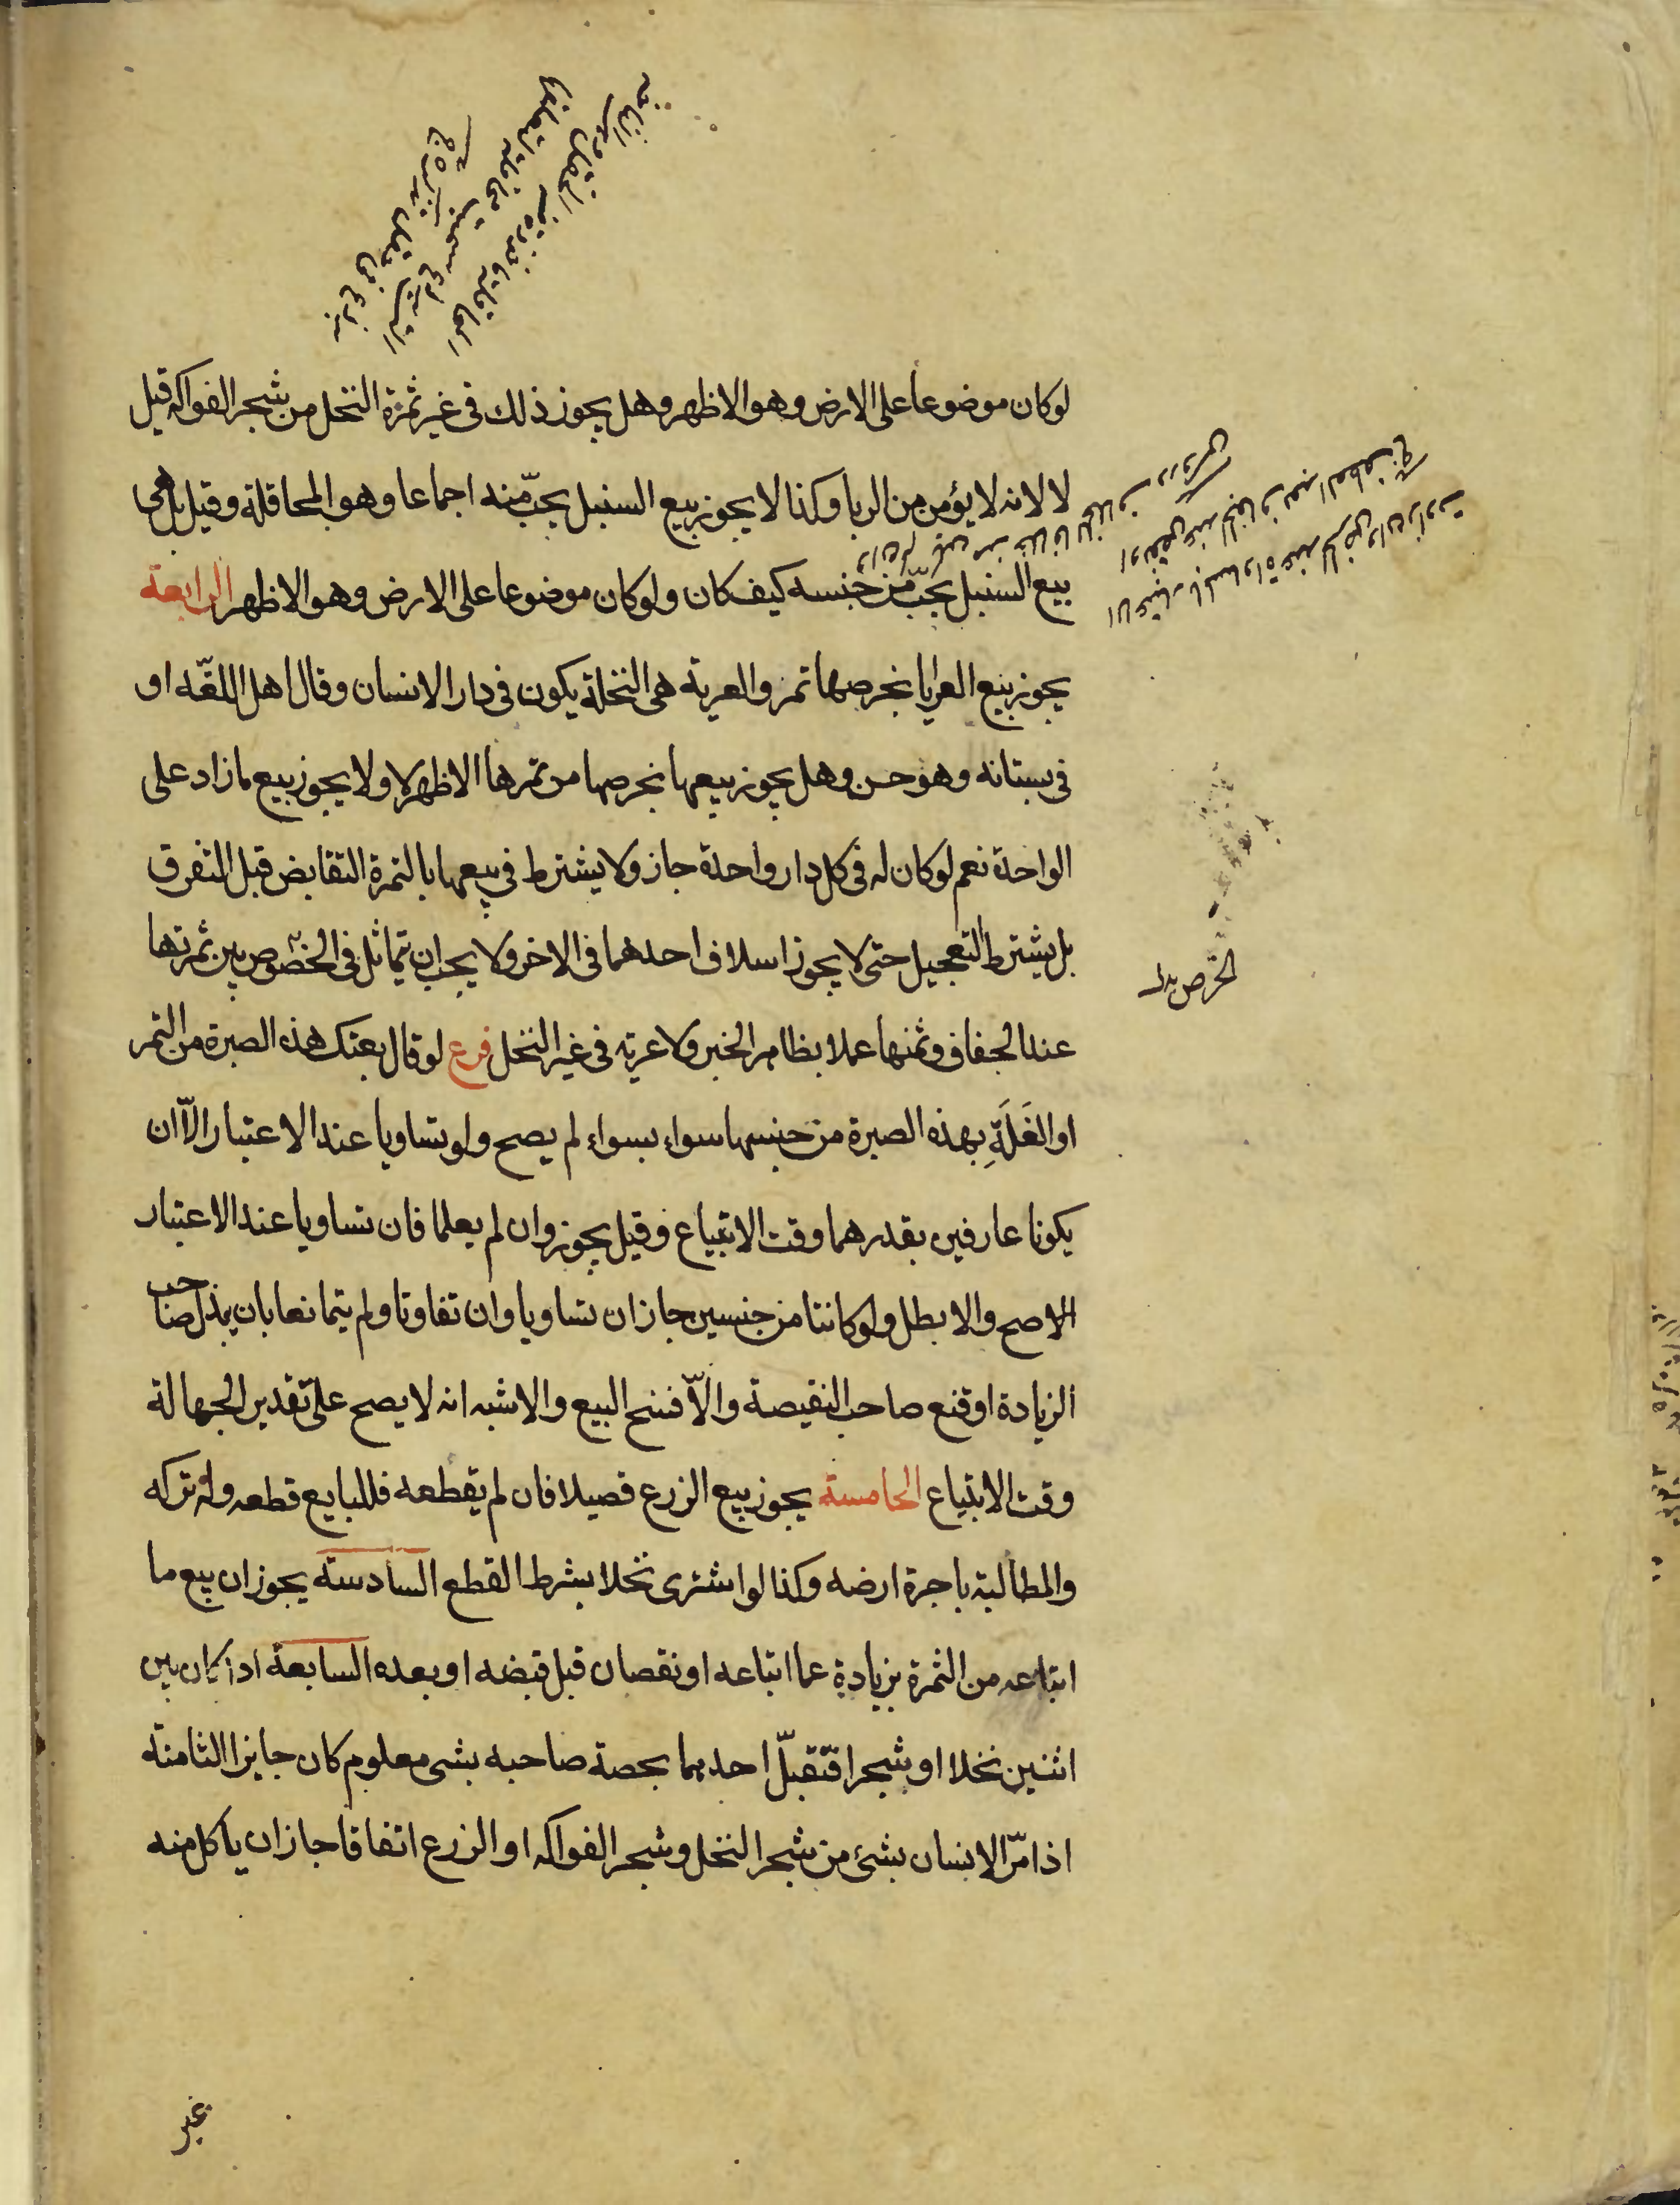 لوكان موضوعا على الارض وهو الاظهر وهل يجوز ذلك فى غير ثمرة النخل من شجر الفواكه قيل
لا لانه لا يؤمن من الربا وكذا لا يجوز بيع السنبل بحبّ منه اجماعا وهو المحاقلة وقيل بل هى
بيع السنبل بحبّ من جنسه كيف كان ولو كان موضوعا على الارض وهو الاظهر الرابعة
يجوز بيع العرايا بخرصها تمر والعرية هى النخلة يكون فى دار الانسان وقال اهل اللغّه او
فى بستانه وهو حسن وهل يجوز بيعها بخرصها من تمرها الاظهر لا ولا يجوز بيع ما زاد على
الواحدة نعم لو كان له فى كل دار واحدة جاز ولا يشترط فى بيعها بالتمرة التقابض قبل التفرق
بل يشترط التعجيل حتى لا يجوز اسلاف احدهما فى الاخر ولا يجب ان يتماثل فى الخصوص بين ثمرتها
عند الجفاف وثمنها عملا بظاهر الخبر ولا عرية فى غير النخل فرع لو قال بعتك هذه الصبرة من التمر
او الغَلَةِ بهذه الصبرة من جنسها سواء بسواء لم يصح ولو تساويا عند الاعتبار الّا ان
يكونا عارفين بقدرهما وقت الابتياع وقيل يجوز وان لم يعلما فان تساويا عند الاعتبار
الاصح والا بطل ولو كانتا من جنسين جاز ان تساويا وان تفاوتا ولم يتمانعا بان بذل صاحب
الزيادة او قنع صاحب النقيصة والّا فسخ البيع والاشبه انه لا يصح على تقدير الجهالة
وقت الابتياع الخامسة يجوز بيع الزرع قصيلا فان لم يقطعه فللبايع قطعه وله تركه
والمطالبة باجرة ارضه وكذا لو اشترى نخلا بشرط القطع السادسة يجوز ان يبيع ما
ابتاعه من الثمرة بزيادة عما ابتاعه او نقصان قبل قبضه او بعده السابعة اذا كان بين
اثنين نخلا او شجرا فتقبّل احدهما بحصة صاحبه بشى معلوم كان جايزا الثامنة
اذا مرّ الانسان بشئ من شجر النخل وشجر الفواكه او الزرع اتفاقا جاز ان ياكل منه
الخرص بدل
غير